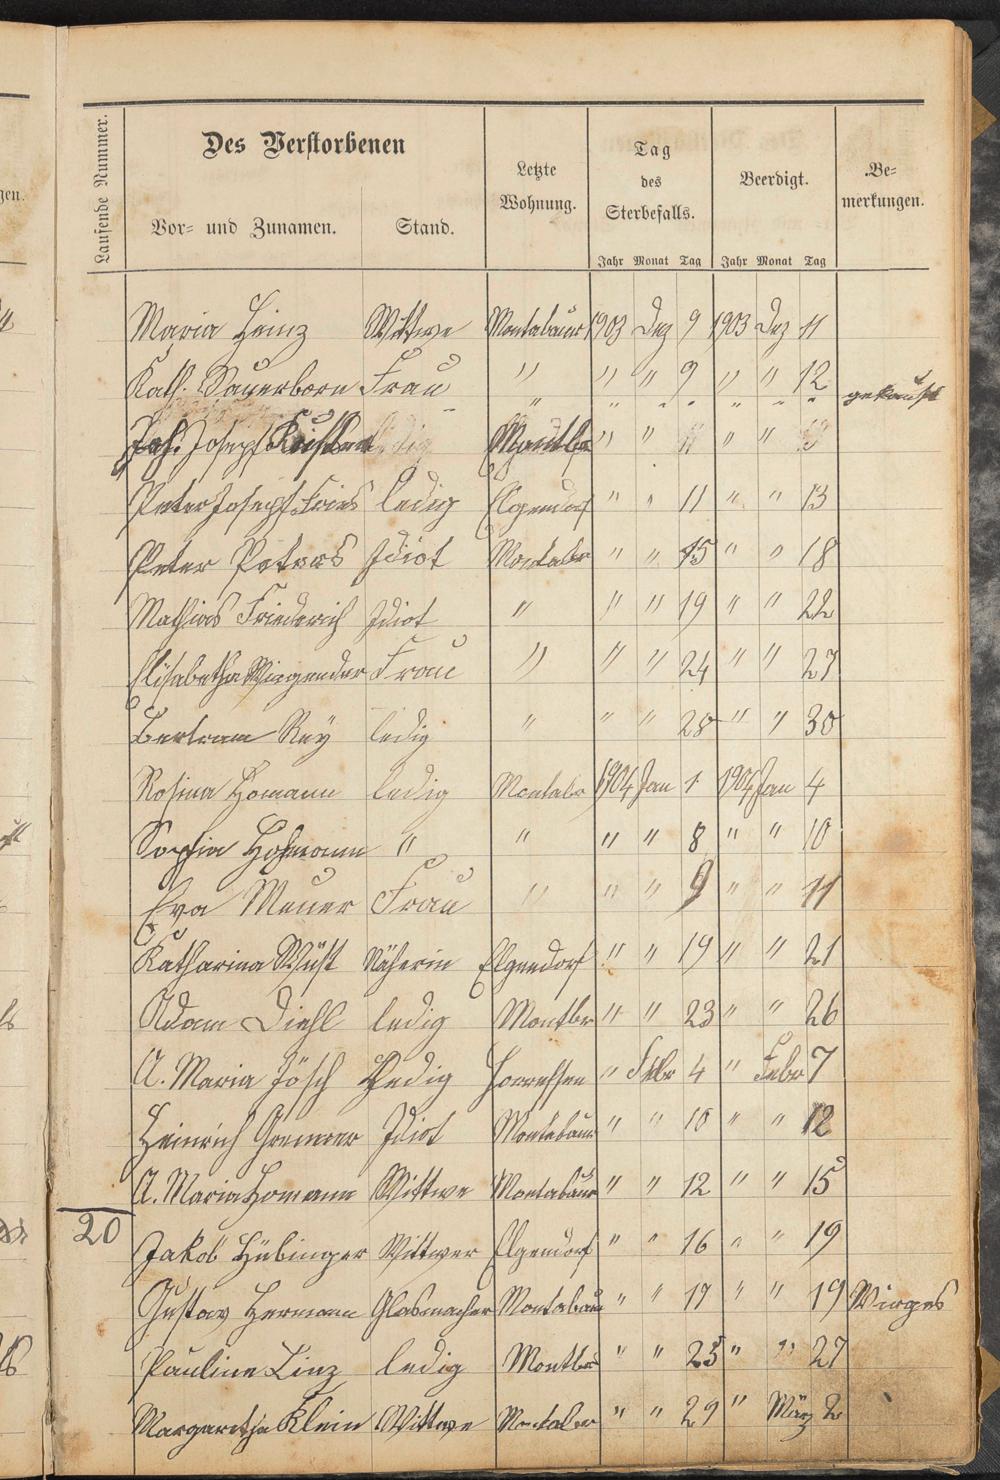 Laufende Nummer.
Des Verstorbenen
Letzte Wohnung.
Tag des Sterbefalls.
Beerdigt.
Be=
merkungen.
Vor= und Zunamen. Stand.
Jahr Monat Tag Jahr Monat Tag
Maria Heinz Wittwe Montabaur 1903 Dez 9 1903 Dez 11
Kath. Sauerborn Frau " " " 9 " " 12 gekauft
Joh. Joseph ledig " " 11 " "
Peter Joseph Fries ledig Elgendorf " " 11 " " 13
Peter Peters Idiot Montabr " " 15 " " 18
Mathias Friederich Idiot " " " 19 " " 22
Elisabetha Frau " " " 24 " " 27
Bertram Rey ledig " " " 28 " " 30
Rosina Homann ledig Montabr 1904 Jan 1 1904 Jan 4
Sophia Hofmann " " " " 8 " " 10
Eva Meuer Frau " " " 9 " " 11
Katharina Wüst Näherin Elgendorf " " 19 " " 21
Adam Diehl ledig Montbr " " 23 " " 26
A. Maria Jösch Ledig Horressen " Febr 4 " Febr 7
Heinrich Idiot Montabaur " " 10 " " 12
A. Maria Homann Wittwe Montabaur " " 12 " " 15
20
Jakob Hübinger Wittwer Elgendorf " " 16 " " 19
Gustav Hermann Glasmacher Montabaur " " 17 " " 19 Wirges
Pauline Linz ledig Montbr " " 25 " " 27
Margaretha Klein Wittwe Montabr " " 29 " März 2